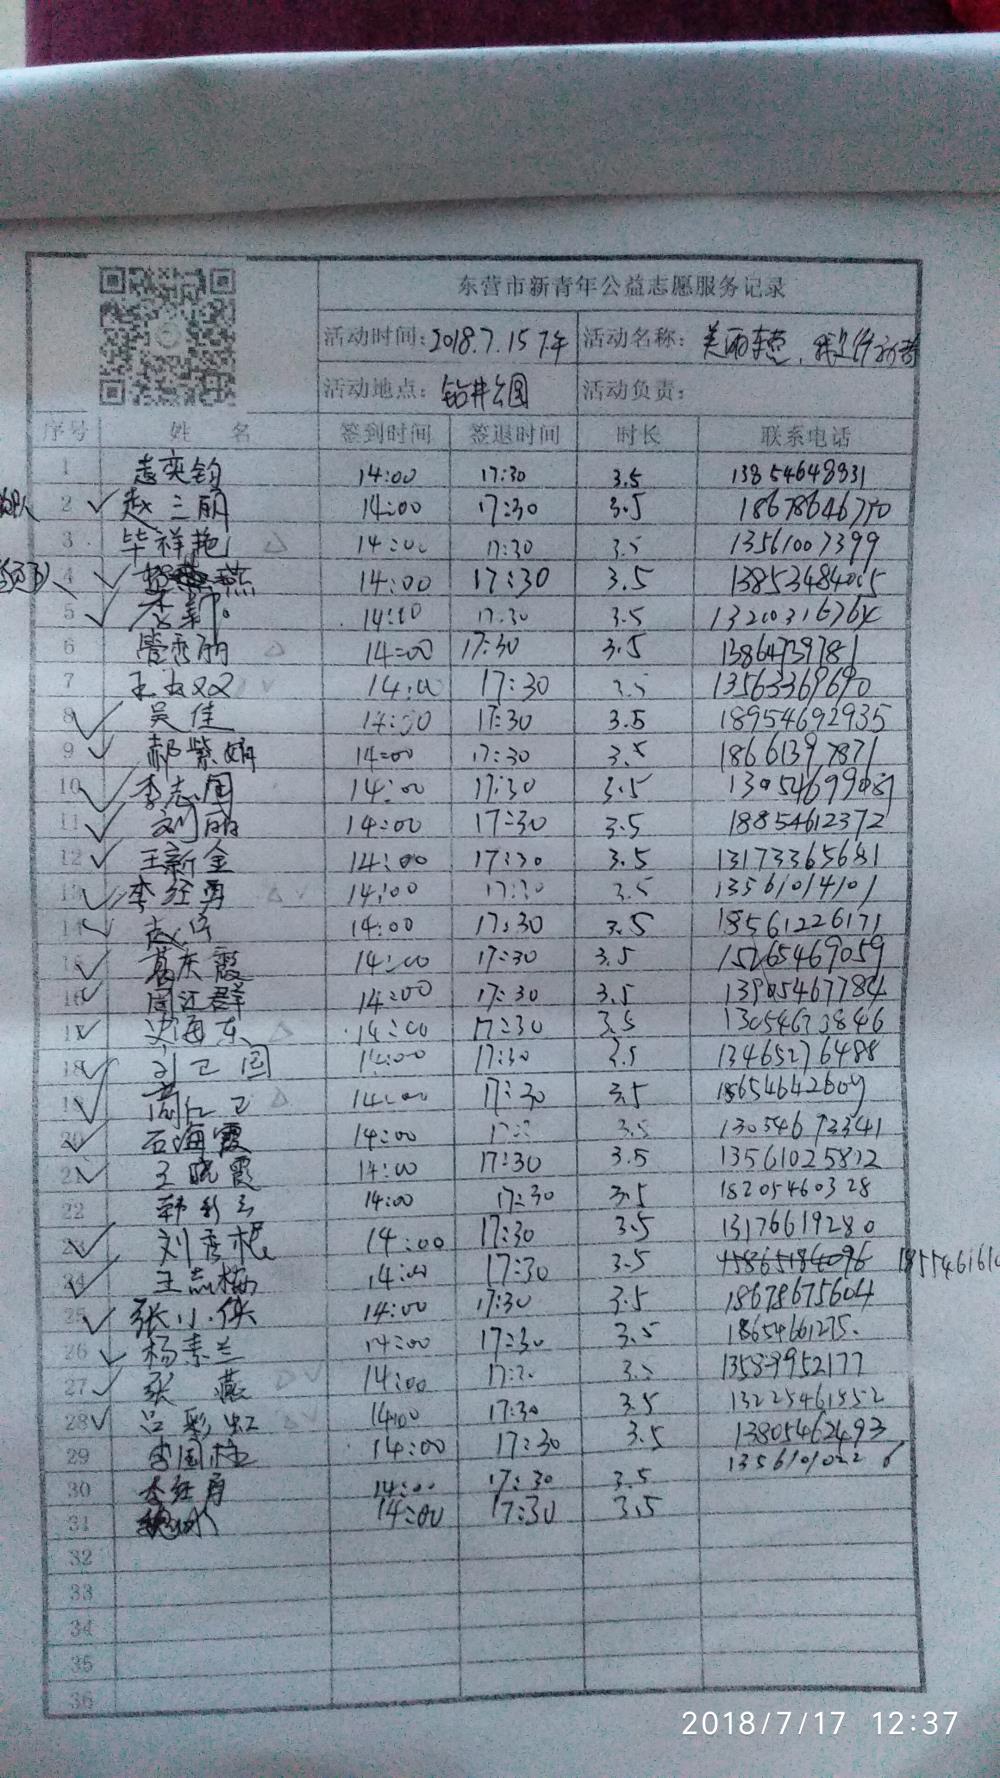 东营市新青年公益志愿服务记录
活动时间: 2018.7.15 下午 活动名称: 美丽东营,
活动地点: 钻井公园 活动负责:
序号 姓 名 签到时间 签退时间 时长 联系电话
1 14:00 17:30 3.5 13854648931
2 ✓ 赵三丽 14:00 17:30 3.5
3 毕祥艳 △ 14:00 17:30 3.5 13561007399
4 ✓ 燕 14:00 17:30 3.5
5 ✓ 17:30 3.5
6 管秀丽 △ 14:00 17:30 3.5 13864739781
7 14:00 17:30 3.5 13563369690
8 ✓ 吴佳 14:00 17:30 3.5 18954692935
9 ✓ 郝紫娟 14:00 17:30 3.5 18661397871
10 ✓ 李志国 14:00 17:30 3.5
11 ✓ 刘丽 14:00 17:30 3.5 18854612372
12 ✓ 王新金 14:00 17:30 3.5 13173365681
13 ✓ 李经勇 △ ✓ 14:00 17:30 3.5 13561014101
14 ✓ 14:00 17:30 3.5 18561226171
15 ✓ 葛庆霞 14:00 17:30 3.5 15265469059
16 ✓ 周江群 14:00 17:30 3.5 13905467784
17 ✓ 史海东 △ 14:00 17:30 3.5 13054673846
18 ✓ 刘卫国 14:00 17:30 3.5 13465276488
19 ✓ △ 14:00 17:30 3.5 18654642609
20 ✓ 石海霞 14:00 3.5
21 ✓ 王晓霞 14:00 17:30 3.5 13561025812
22 14:00 17:30 3.5 18205460328
23 ✓ 14:00 17:30 3.5 13176619280
24 ✓ 王志梅 14:00 17:30 3.5
25 ✓ 张小侠 14:00 17:30 3.5 18678675604
26 ✓ 杨素兰 14:00 17:30 3.5 18654661275.
27 ✓ 张燕 △ ✓ 14:00 3.5 13589952177
28 ✓ 吕彩虹 △ ✓ 14:00 17:30 3.5 13225461552
29 李国柱 14:00 17:30 3.5 13805462493
30 李经勇 14:00 17:30 3.5 13561010226
31 14:00 17:30 3.5
32
33
34
35
36
2018/7/17 12:37